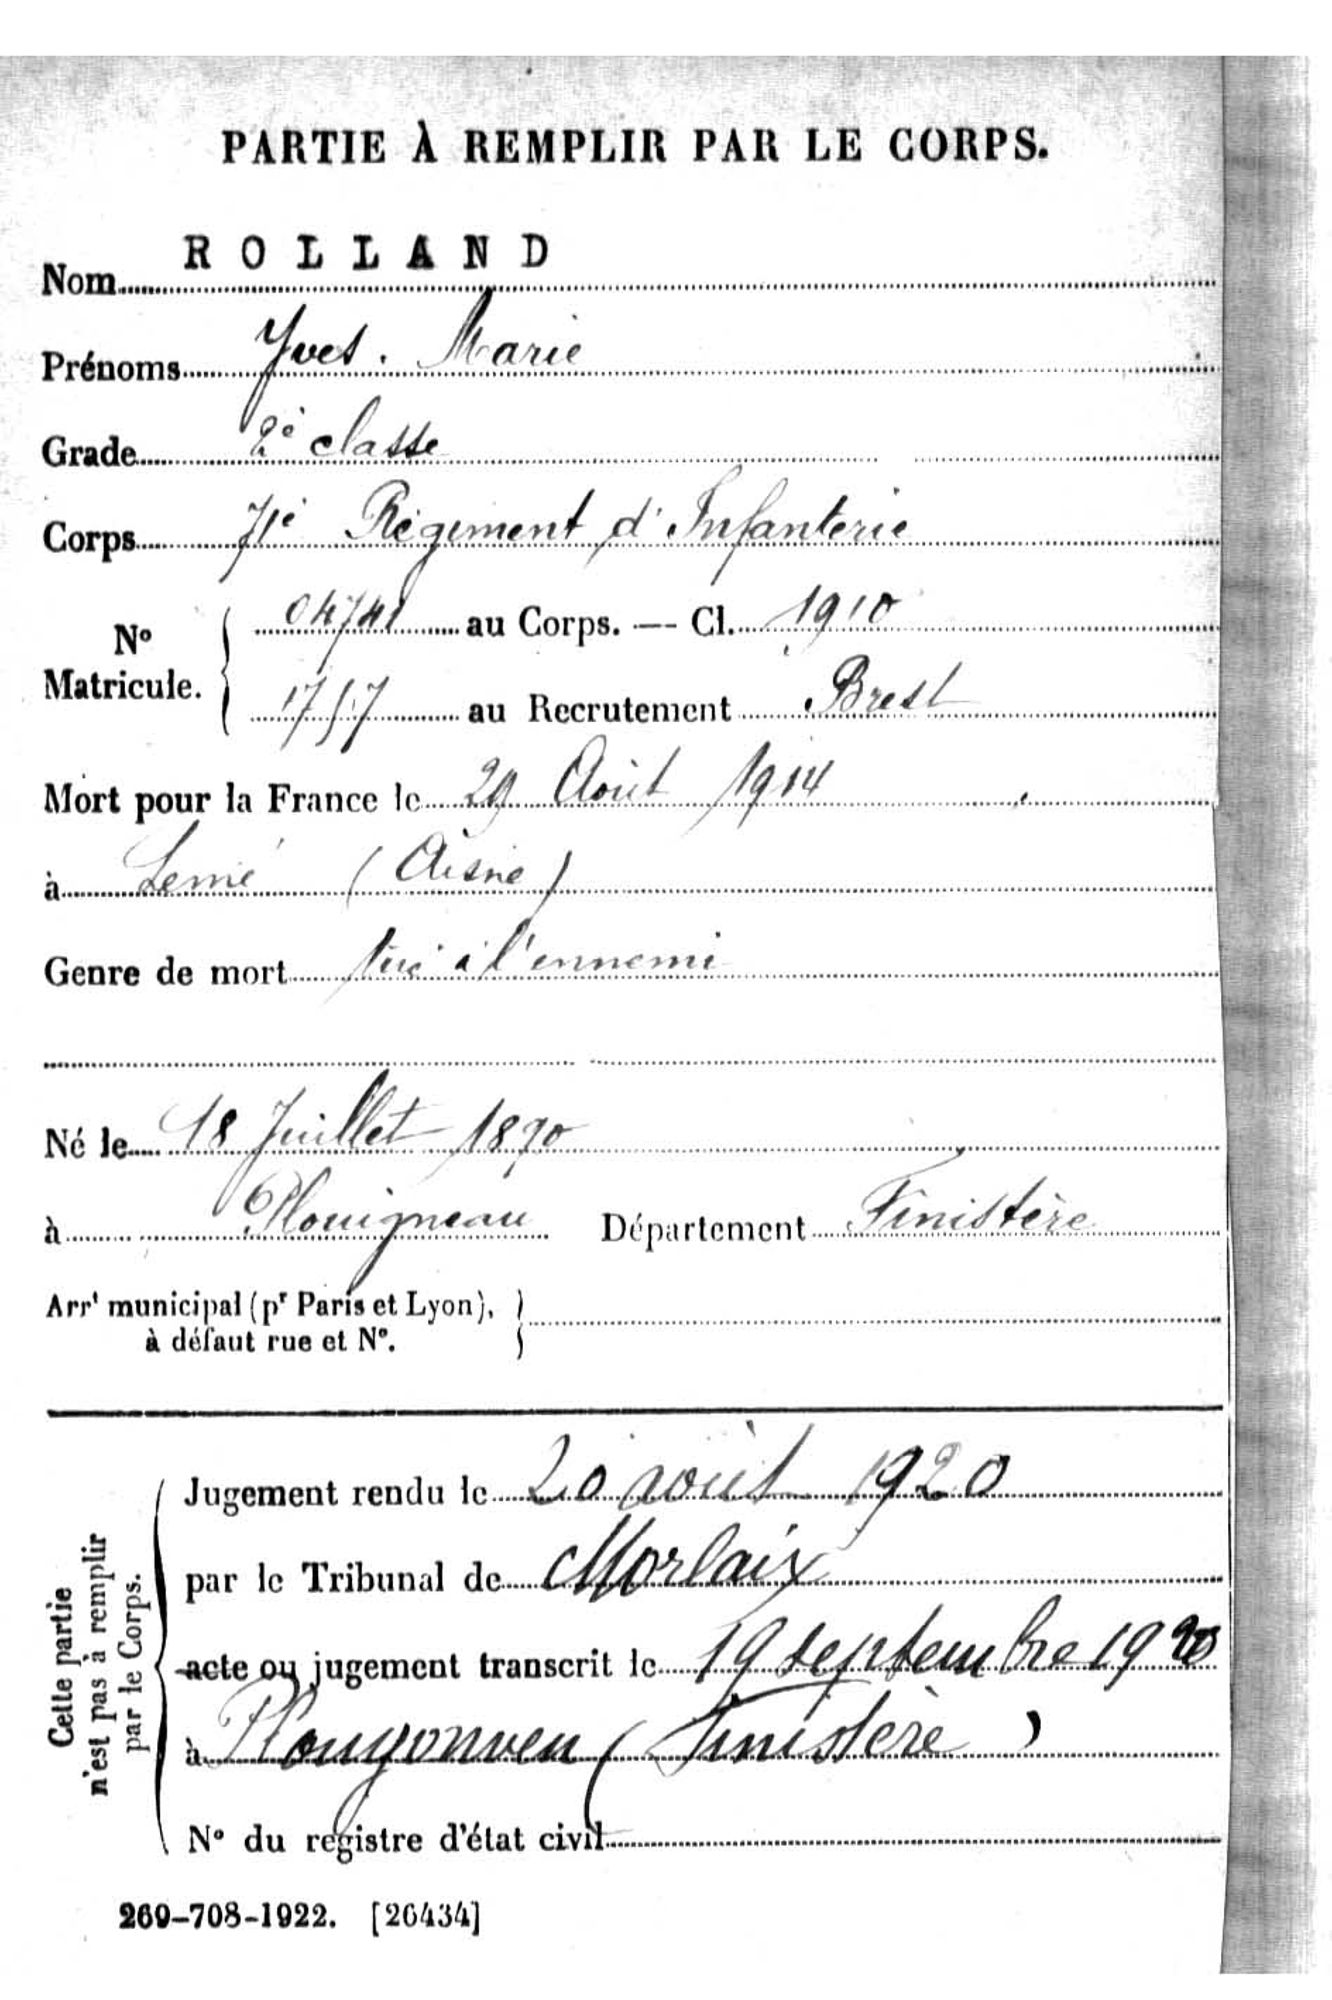 PARTIE À REMPLIR PAR LE CORPS.
Nom ROLLAND
Prénoms Yves. Marie
Grade 2è classe
Corps 71è Régiment d'Infanterie
N° Matricule.
04741 au Corps. — Cl. 1910
1757 au Recrutement Brest
Mort pour la France le 29 Août 1914
à Lemé (Aisne)
Genre de mort tué à l'ennemi
Né le 18 Juillet 1890
à Plouigneau Département Finistère
Arrt municipal (pr Paris et Lyon),
à défaut rue et N°.
Cette partie
n'est pas à remplir
par le Corps.
Jugement rendu le 20 août 1920
par le Tribunal de Morlaix
acte ou jugement transcrit le 19 septembre 1920
à Plougonven (Finistère)
N° du registre d'état civil
269-708-1922. [26434]